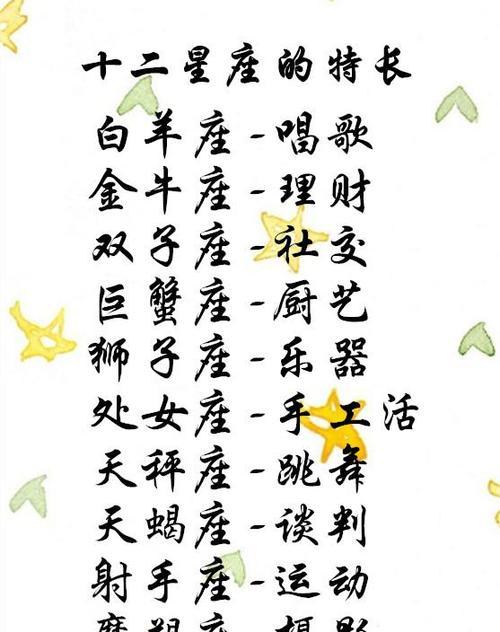 十二星座的特长
白羊座-唱歌
金牛座-理财
双子座-社交
巨蟹座-厨艺
狮子座-乐器
处女座-手工活
天秤座-跳舞
天蝎座-谈判
射手座-运动